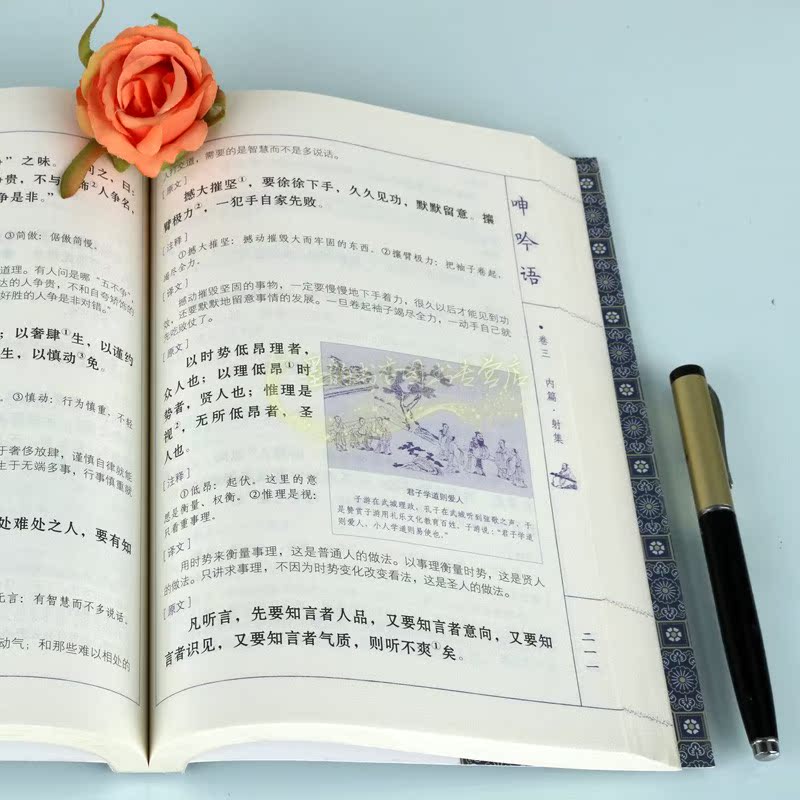 ”之味。
问之，曰：
贵，不与
人争名，
争是非。”
③简傲：倨傲简慢。
道理。有人问是哪“五不争”，
达的人争贵，不和自夸矫饰的
好胜的人争是非对错。”
；以奢肆①生，以谨约
生，以慎动③免。
③慎动：行为慎重、不轻
于奢侈放肆，谨慎自律就能
生于无端多事，行事慎重就
处难处之人，要有知
无言：有智慧而不多说话。
动气；和那些难以相处的
人打交道，需要的是智慧而不是多说话。
[原文]
撼大摧坚①，要徐徐下手，久久见功，默默留意。攘
臂极力②，一犯手自家先败。
[注释]
①撼大摧坚：撼动摧毁大而牢固的东西。②攘臂极力：把袖子卷起，
竭尽全力。
[译文]
撼动摧毁坚固的事物，一定要慢慢地下手着力，很久以后才能见到功
效，还要默默地留意事情的发展。一旦卷起袖子竭尽全力，一动手自己就
先吃败仗了。
[原文]
以时势低昂理者，
众人也；以理低昂①时
势者，贤人也；惟理是
视②，无所低昂者，圣
人也。
[注释]
①低昂：起伏。这里的意
思是衡量、权衡。②惟理是视：
只看重事理。
君子学道则爱人
子游在武城理政，孔子在武城听到弦歌之声，于
是赞赏子游用礼乐文化教育百姓。子游说：“君子学道
则爱人，小人学道则易使也。”
[译文]
用时势来衡量事理，这是普通人的做法。以事理衡量时势，这是贤人
的做法。只讲求事理，不因为时势变化改变看法，这是圣人的做法。
[原文]
凡听言，先要知言者人品，又要知言者意向，又要知
言者识见，又要知言者气质，则听不爽①矣。
呻吟语
·卷三 内篇·射集
二一一